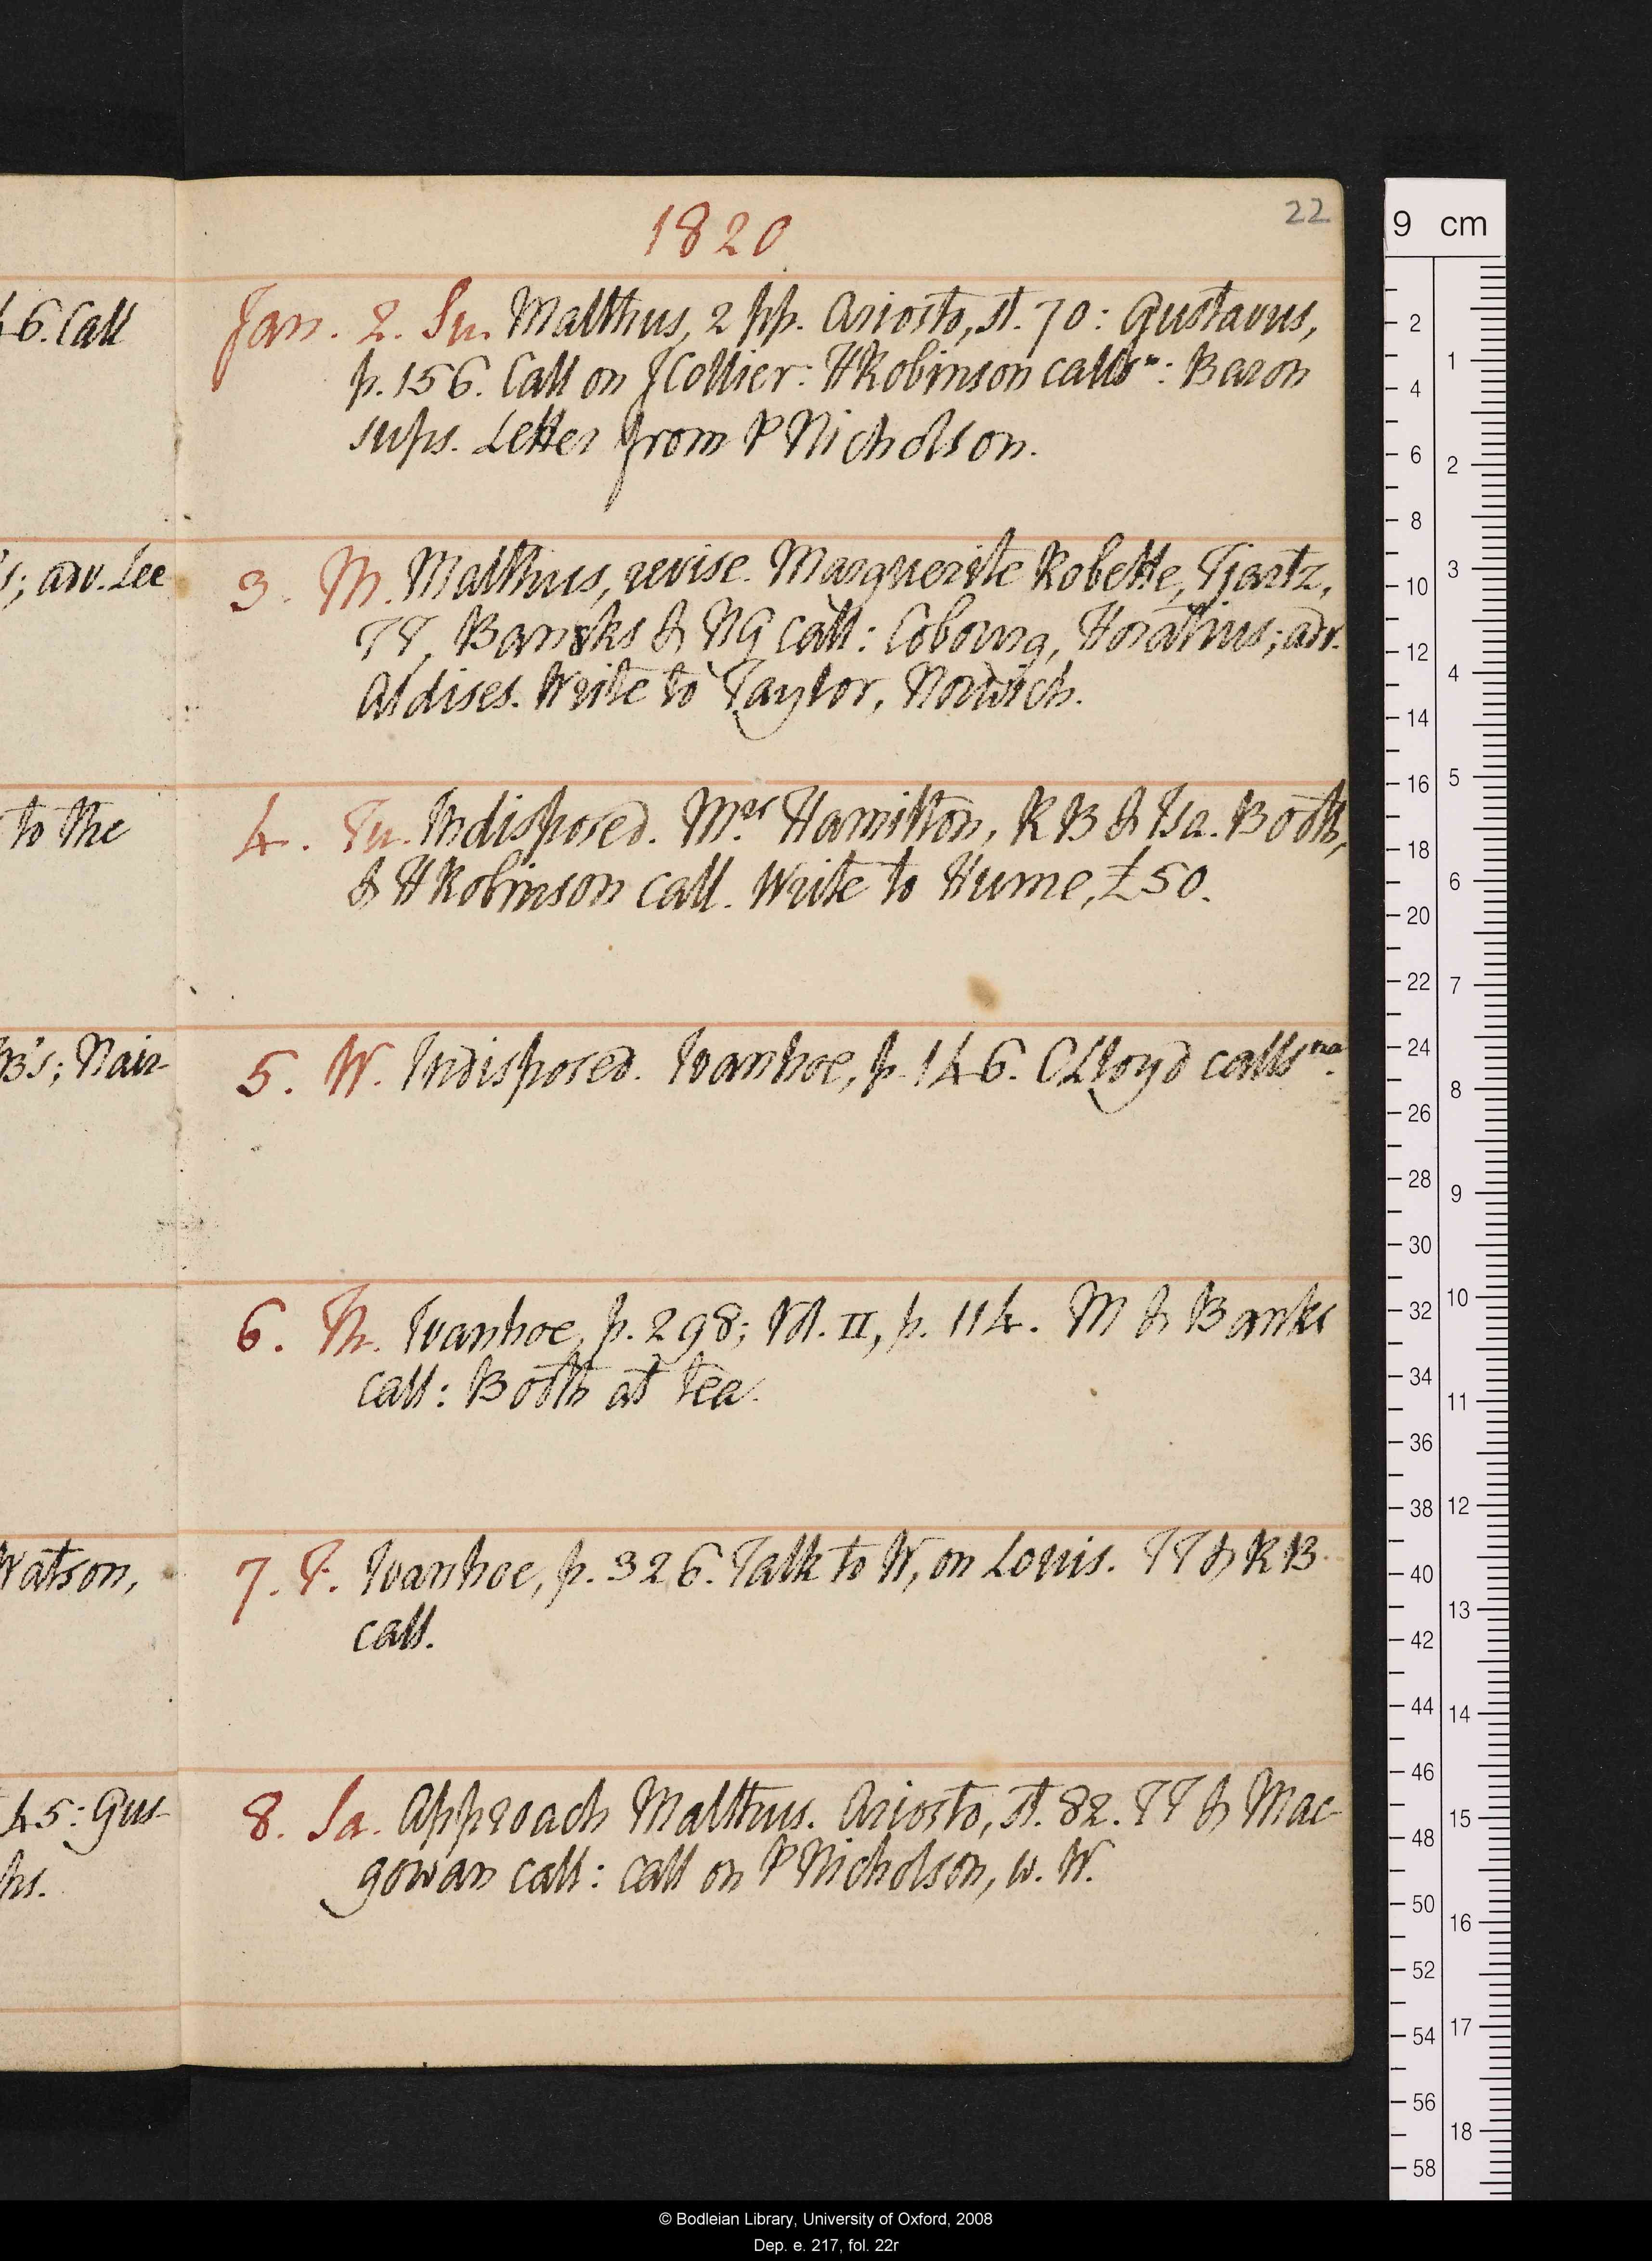 1820
22
46. Call
Jan. 2. Su. Malthus, 2 pp. Ariosto, st. 70: Gustavus,
p. 156. Call on J Collier: H Robinson calls n: Baron
sups. Letter from P Nicholson.
's; adv. Lee
3. M. Malthus, revise. Marguerite Robette, Tjartz,
TT, Banks & NG call: Cobourg, Horatius; adv.
Aldises. Write to Taylor, Norwich.
to the
4. Tu. Indisposed. Mrs Hamilton, RB & Isa. Booth,
& H Robinson call. Write to Hume, £50.
RB's; Nair-
5. W. Indisposed. Ivanhoe, p. 146. C Lloyd calls na.
6. Th. Ivanhoe, p. 298; Vol. II, p. 114. M & Banks
call: Booth at tea.
Watson,
7. F. Ivanhoe, p. 326. Talk to W, on Louis. TT & RB
call.
45: Gus-
8. Sa. Approach Malthus. Ariosto, st. 82. TT & Mac-
gowan call: call on P Nicholson, w. W.
ps.
9 cm
2
4
6
8
10
12
14
16
18
20
22
24
26
28
30
32
34
36
38
40
42
44
46
48
50
52
54
56
58
1
2
3
4
5
6
7
8
9
10
11
12
13
14
15
16
17
18
© Bodleian Library, University of Oxford, 2008
Dep. e. 217, fol. 22r